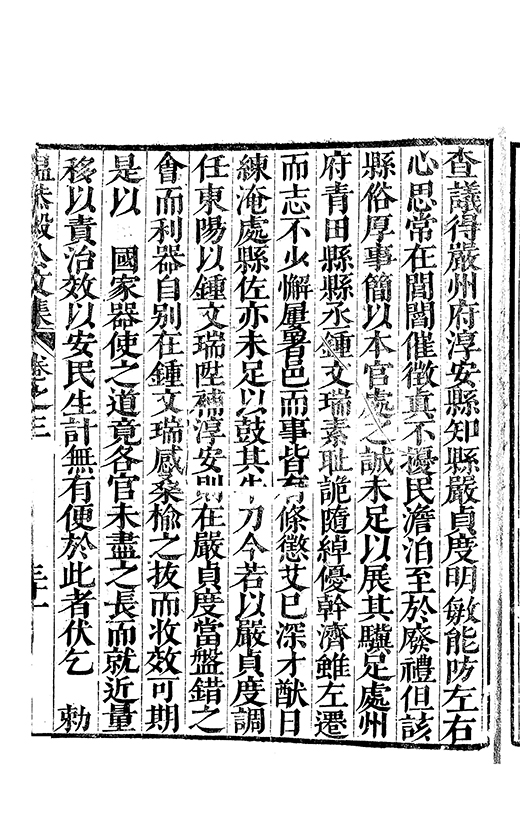 查議得嚴州府淳安縣知縣嚴貞度明敏能防左右
心思常在閭閻催徵真不擾民澹泊至於廢禮但該
縣俗厚事簡以本官處之誠未足以展其驥足處州
府青田縣縣丞鍾文瑞素耻詭隨綽優幹濟雖左遷
而志不少懈屢署邑而事皆有條懲艾已深才猷日
練淹處縣佐亦未足以鼓其牛刀今若以嚴貞度調
任東陽以鍾文瑞陞補淳安則在嚴貞度當盤錯之
會而利器自别在鍾文瑞感桑榆之拔而收效可期
是以　國家器使之道竟各官未盡之長而就近量
移以責治效以安民生計無有便於此者伏乞　勅
溫恭毅公文集 卷之三 三十一